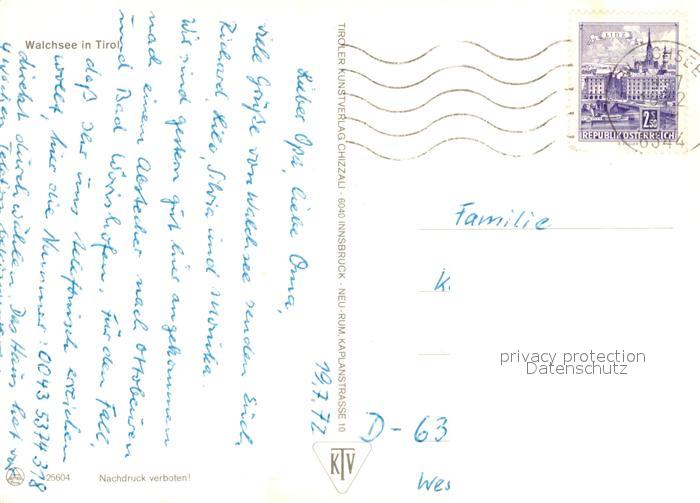 Walchsee in Tirol
19.7.72
Lieber Opa, liebe Oma,
viele Grüße von Walchsee senden Euch
Richard, Silvia und Monika.
Wir sind gestern gut hier angekommen
nach einem Abstecher nach Ottobeuren
und Bad Wörishofen. Für den Fall,
daß Ihr uns telefonisch erreichen
wollt, hier die Nummer: 0043 5374 318
direkt durchwählen. Das Haus hat
4 Wochen Telefon
25604 Nachdruck verboten!
TIROLER KUNSTVERLAG CHIZZALI · 6040 INNSBRUCK - NEU-RUM, KAPLANSTRASSE 10
KTV
LINZ
2.50
REPUBLIK ÖSTERREICH
6344
Familie
K
privacy protection
Datenschutz
D - 63
Wes